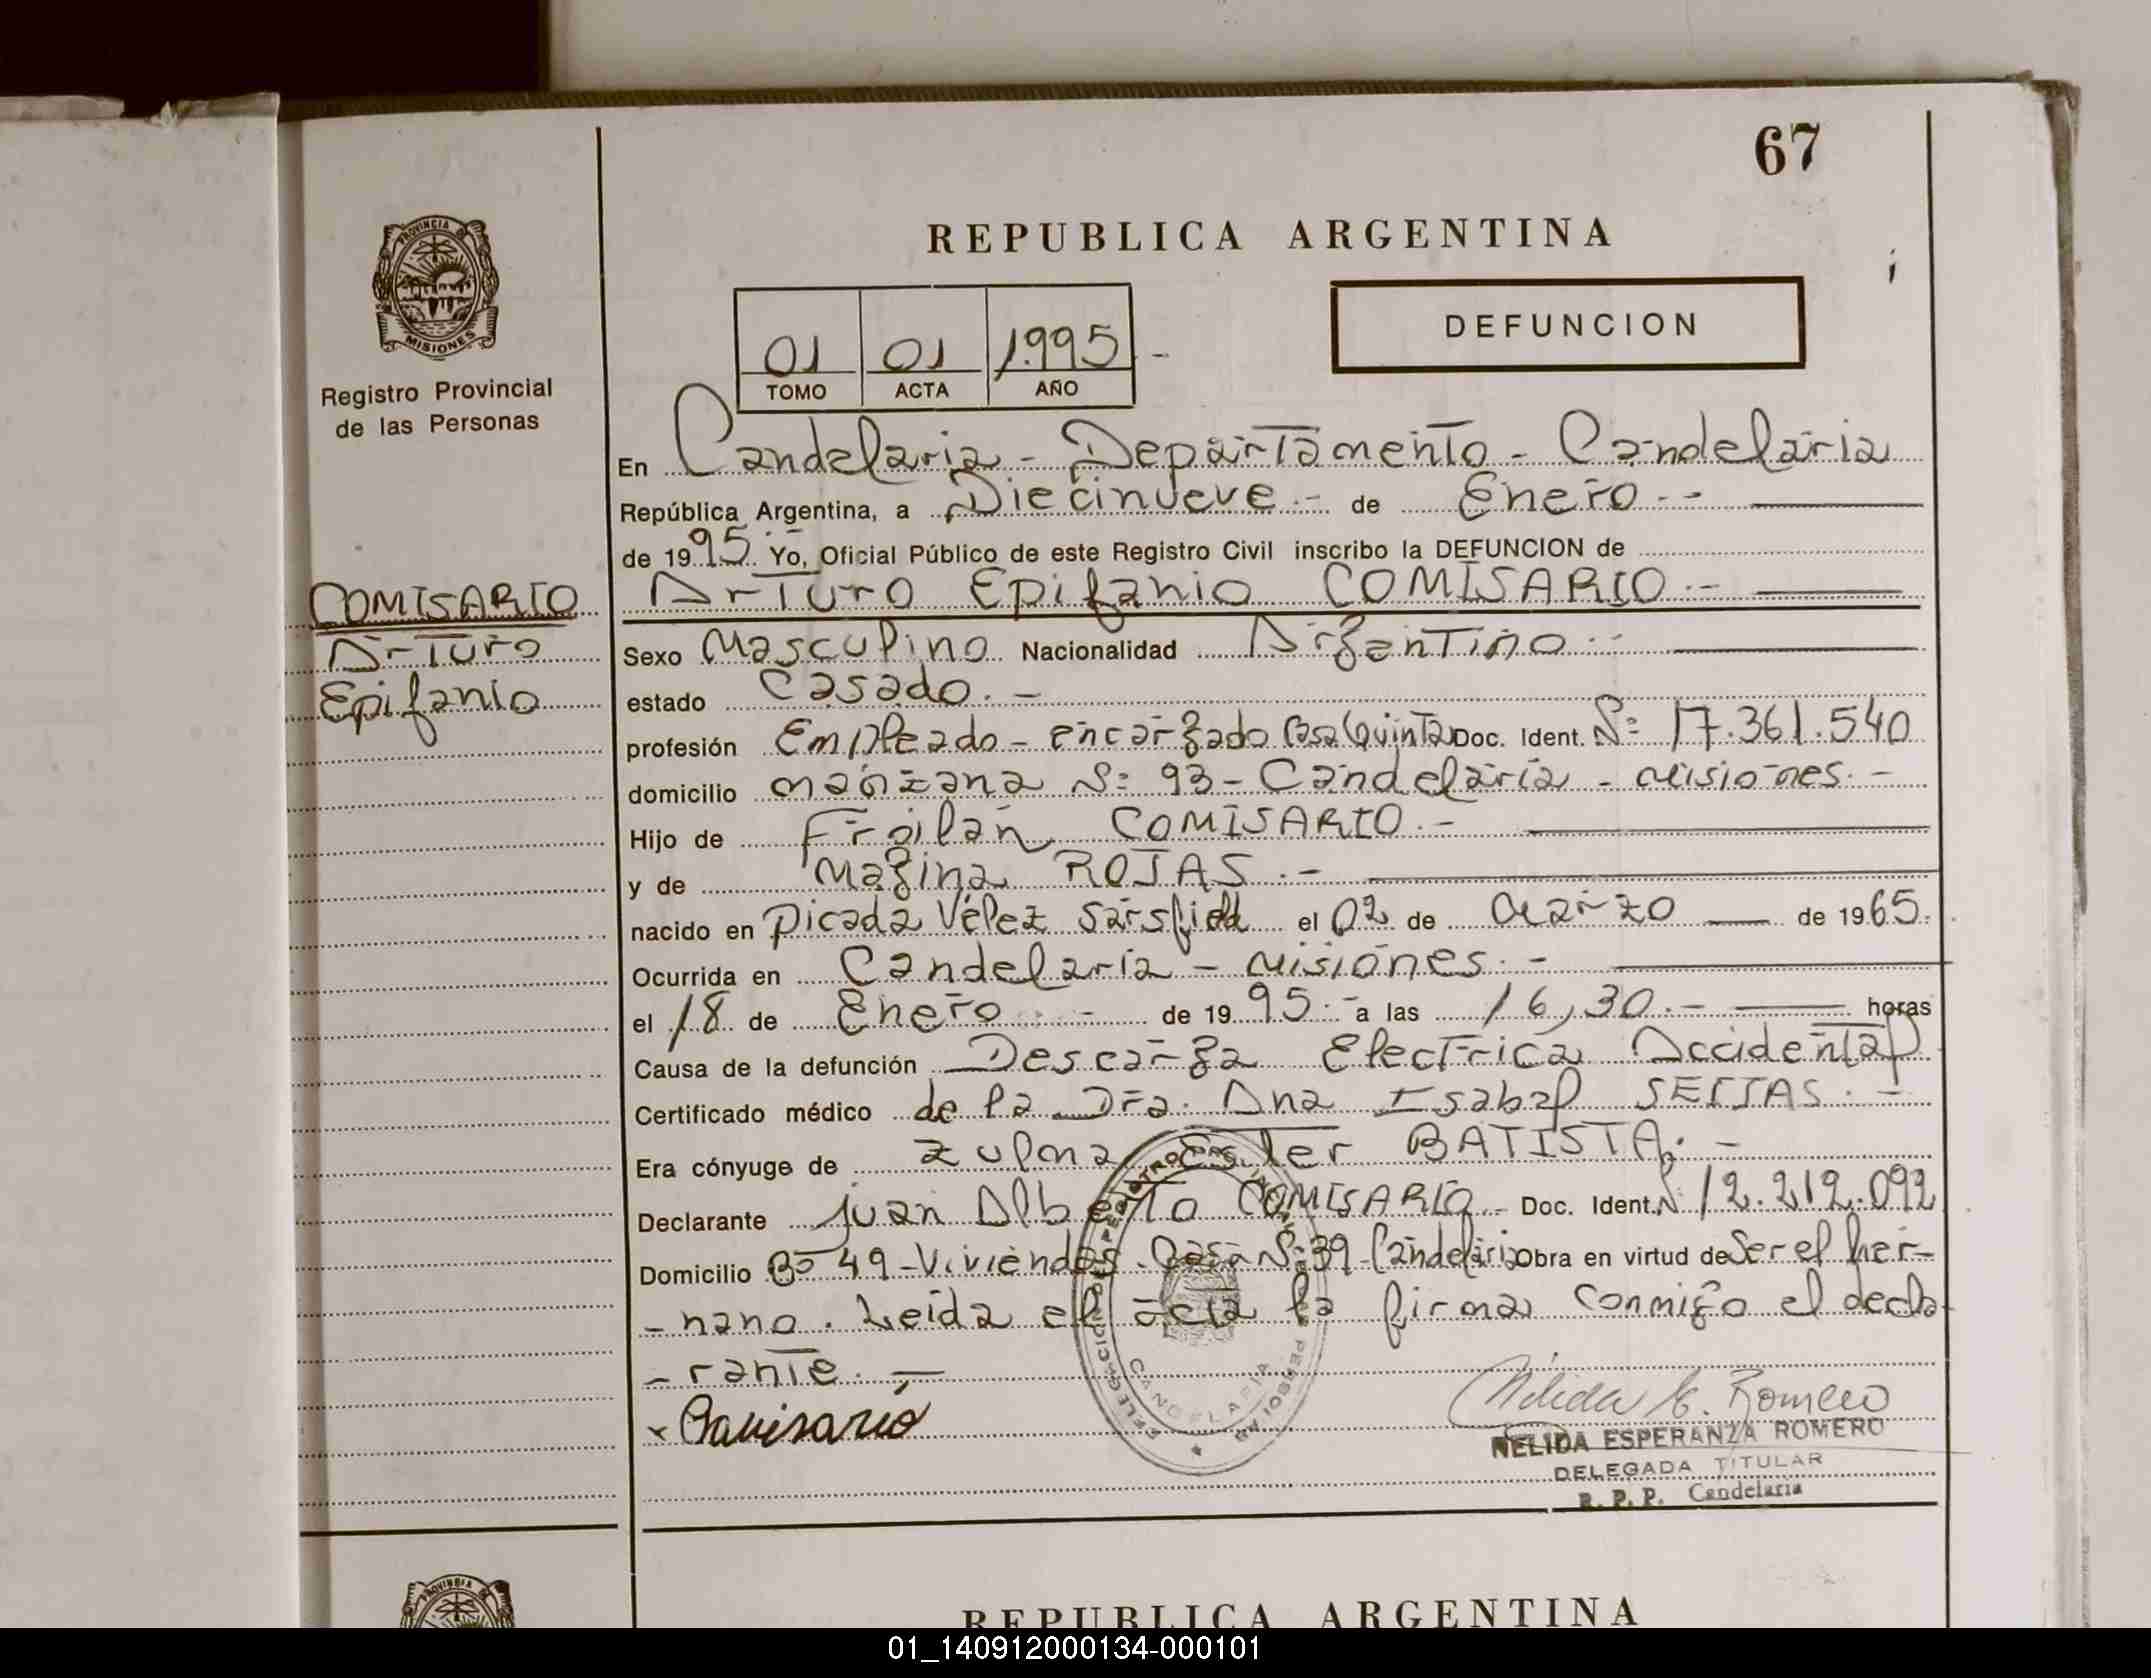 67
REPUBLICA ARGENTINA
PROVINCIA DE
MISIONES
Registro Provincial
de las Personas
01 01 1.995 -
TOMO ACTA AÑO
DEFUNCION
En Candelaria - Departamento - Candelaria
República Argentina, a Diecinueve.- de Enero.--
de 1995. Yo, Oficial Público de este Registro Civil inscribo la DEFUNCION de
COMISARIO
Arturo
Epifanio
Arturo Epifanio COMISARIO.-
Sexo Masculino Nacionalidad Argentino.-
estado Casado.-
profesión Empleado - encargado Casa Quinta Doc. Ident. Nº 17.361.540
domicilio Manzana Nº 93 - Candelaria - Misiones.-
Hijo de Froilán COMISARIO.-
y de Magina ROJAS.-
nacido en Picada Vélez Sársfield el 02 de Marzo de 1965.
Ocurrida en Candelaria - Misiones.-
el 18 de Enero.- de 1995.- a las 16,30.- horas
Causa de la defunción Descarga Electrica Accidental
Certificado médico de la Dra. Ana Isabel SEIJAS.-
Era cónyuge de Zulma Ester BATISTA.-
Declarante Juan Alberto COMISARIO Doc. Ident. Nº 12.212.092
Domicilio Bº 49 - Viviendas - Casa Nº 39 - Candelaria Obra en virtud de Ser el her-
-mano. Leída el acta la firma conmigo el decla-
-rante.-
x Comisario
CANDELARIA
Nélida E. Romero
NELIDA ESPERANZA ROMERO
DELEGADA TITULAR
R. P. P. Candelaria
REPUBLICA ARGENTINA
01_140912000134-000101